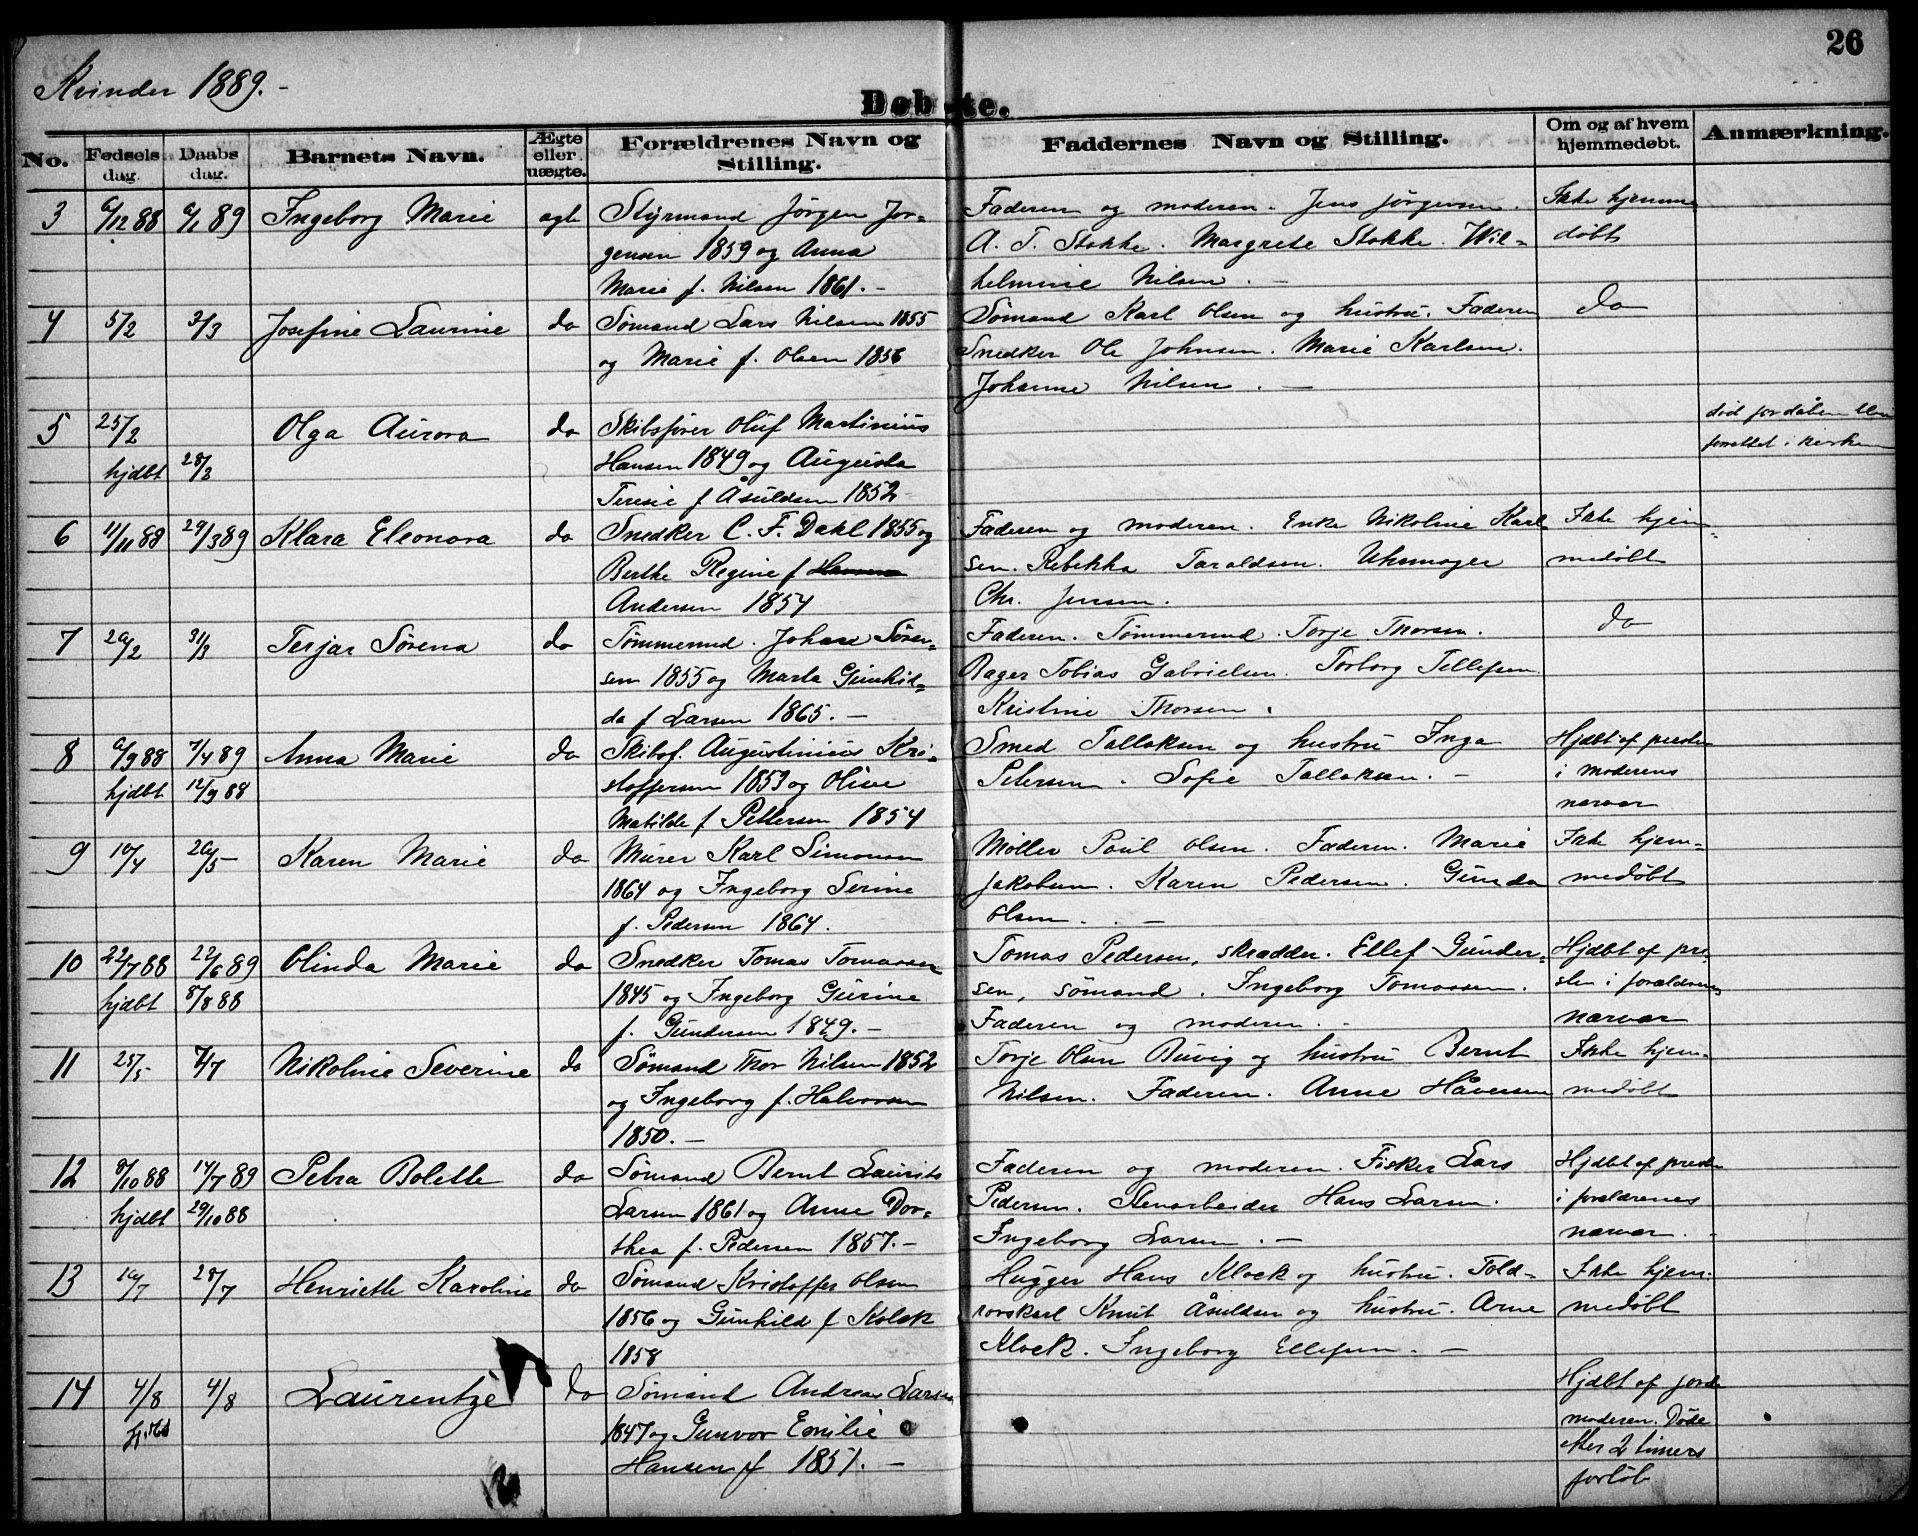 26
Kvinder 1889.-
Døbte.
No. Fødsels dag. Daabs dag. Barnets Navn. Ægte eller uægte. Forældrenes Navn og Stilling. Faddernes Navn og Stilling. Om og af hvem hjemmedøbt. Anmærkning.
3 6/12 88 6/1 89 Ingeborg Marie ægt Styrmand Jørgen Jør- Faderen og moderen. Jens Jørgensen. Ikke hjemme
gensen 1859 og Anna A. T. Stokke. Margrete Stokke. Wil- døbt
Marie f. Nilsen 1861.- helmine Nilsen.
4 5/2 3/3 Josefine Laurine do Sømand Lars Nilsen 1855 Sømand Karl Olsen og hustru. Faderen do
og Marie f. Olsen 1856 Snedker Ole Johnsen. Marie Karlsen.
Johanne Nilsen. -
5 25/2 Olga Aurora do Skibsfører Oluf Martinius død før dåben blev
hjdbt 28/2 Hansen 1849 og Augusta forrettet i kirken
Teresie f Åsuldsen 1852
6 11/11 88 29/3 89 Klara Eleonora do Snedker C. F. Dahl 1855 og Faderen og moderen. Enke Nikoline Karl Ikke hjem-
Berthe Regine f Hansen sen. Rebekka Taraldsen. Uhrmager medøbt
Andersen 1854 Chr. Jensen.
7 20/2 31/3 Terjar Sørena do Tømmermd. Johan Søren- Faderen. Tømmermd. Torje Thorsen. do
sen 1855 og Marta Gunhil- Bager Tobias Gabrielsen. Torborg Tellefsen
da f Larsen 1865.- Kristine Thorsen.
8 6/9 88 7/4 89 Anna Marie do Skibsf. Augustinius Kri- Smed Tallaksen og hustru Inga Hjdbt af presten
hjdbt 12/9 88 stoffersen 1853 og Olive Petersen. Sofie Tallaksen.- i moderens
Matilde f Pettersen 1854 nærvær
9 10/4 20/5 Karen Marie do Murer Karl Simonsen Møller Poul Olsen. Faderen. Marie Ikke hjem-
1864 og Ingeborg Serine Jakobsen. Karen Pedersen. Gunda medøbt
f. Pedersen 1864. Olsen. -
10 22/7 88 22/6 89 Olinda Marie do Snedker Tomas Tomassen Tomas Pedersen, skrædder. Ellef Gunder- Hjdbt af pre-
hjdbt 8/8 88 1845 og Ingeborg Gurine sen, sømand. Ingeborg Tomassen. sten i forældrenes
f. Gundersen 1849.- Faderen og moderen.- nærvær
11 25/5 7/7 Nikoline Severine do Sømand Thor Nilsen 1852 Torje Olsen Buvig og hustru Bernt Ikke hjem-
og Ingeborg f. Halvorsen Nilsen. Faderen. Anne Håversen medøbt
1850.-
12 8/10 88 14/7 89 Petra Bolette do Sømand Bernt Laurits Faderen og moderen. Fisker Lars Hjdbt af presten
hjdbt 29/10 88 Larsen 1861 og Anne Dor- Pedersen. Stenarbeider Hans Larsen. i forældrenes
thea f. Pedersen 1857.- Ingeborg Larsen.- nærvær.-
13 10/7 28/7 Henriette Karoline do Sømand Kristoffer Olsen Hugger Hans Klock og hustru. Told- Ikke hjem-
1856 og Gunhild f Klock rorskarl Knut Åsuldsen og hustru. Arne medøbt
1858 Klock. Ingeborg Ellefsen.-
14 4/8 4/8 Laurentze do Sømand Andreas Larsen Hjdbt af jorde
hjdbt 1847 og Gunvor Emilie moderen. Døde
Hansen f 1851.- efter 2 timers
forløb